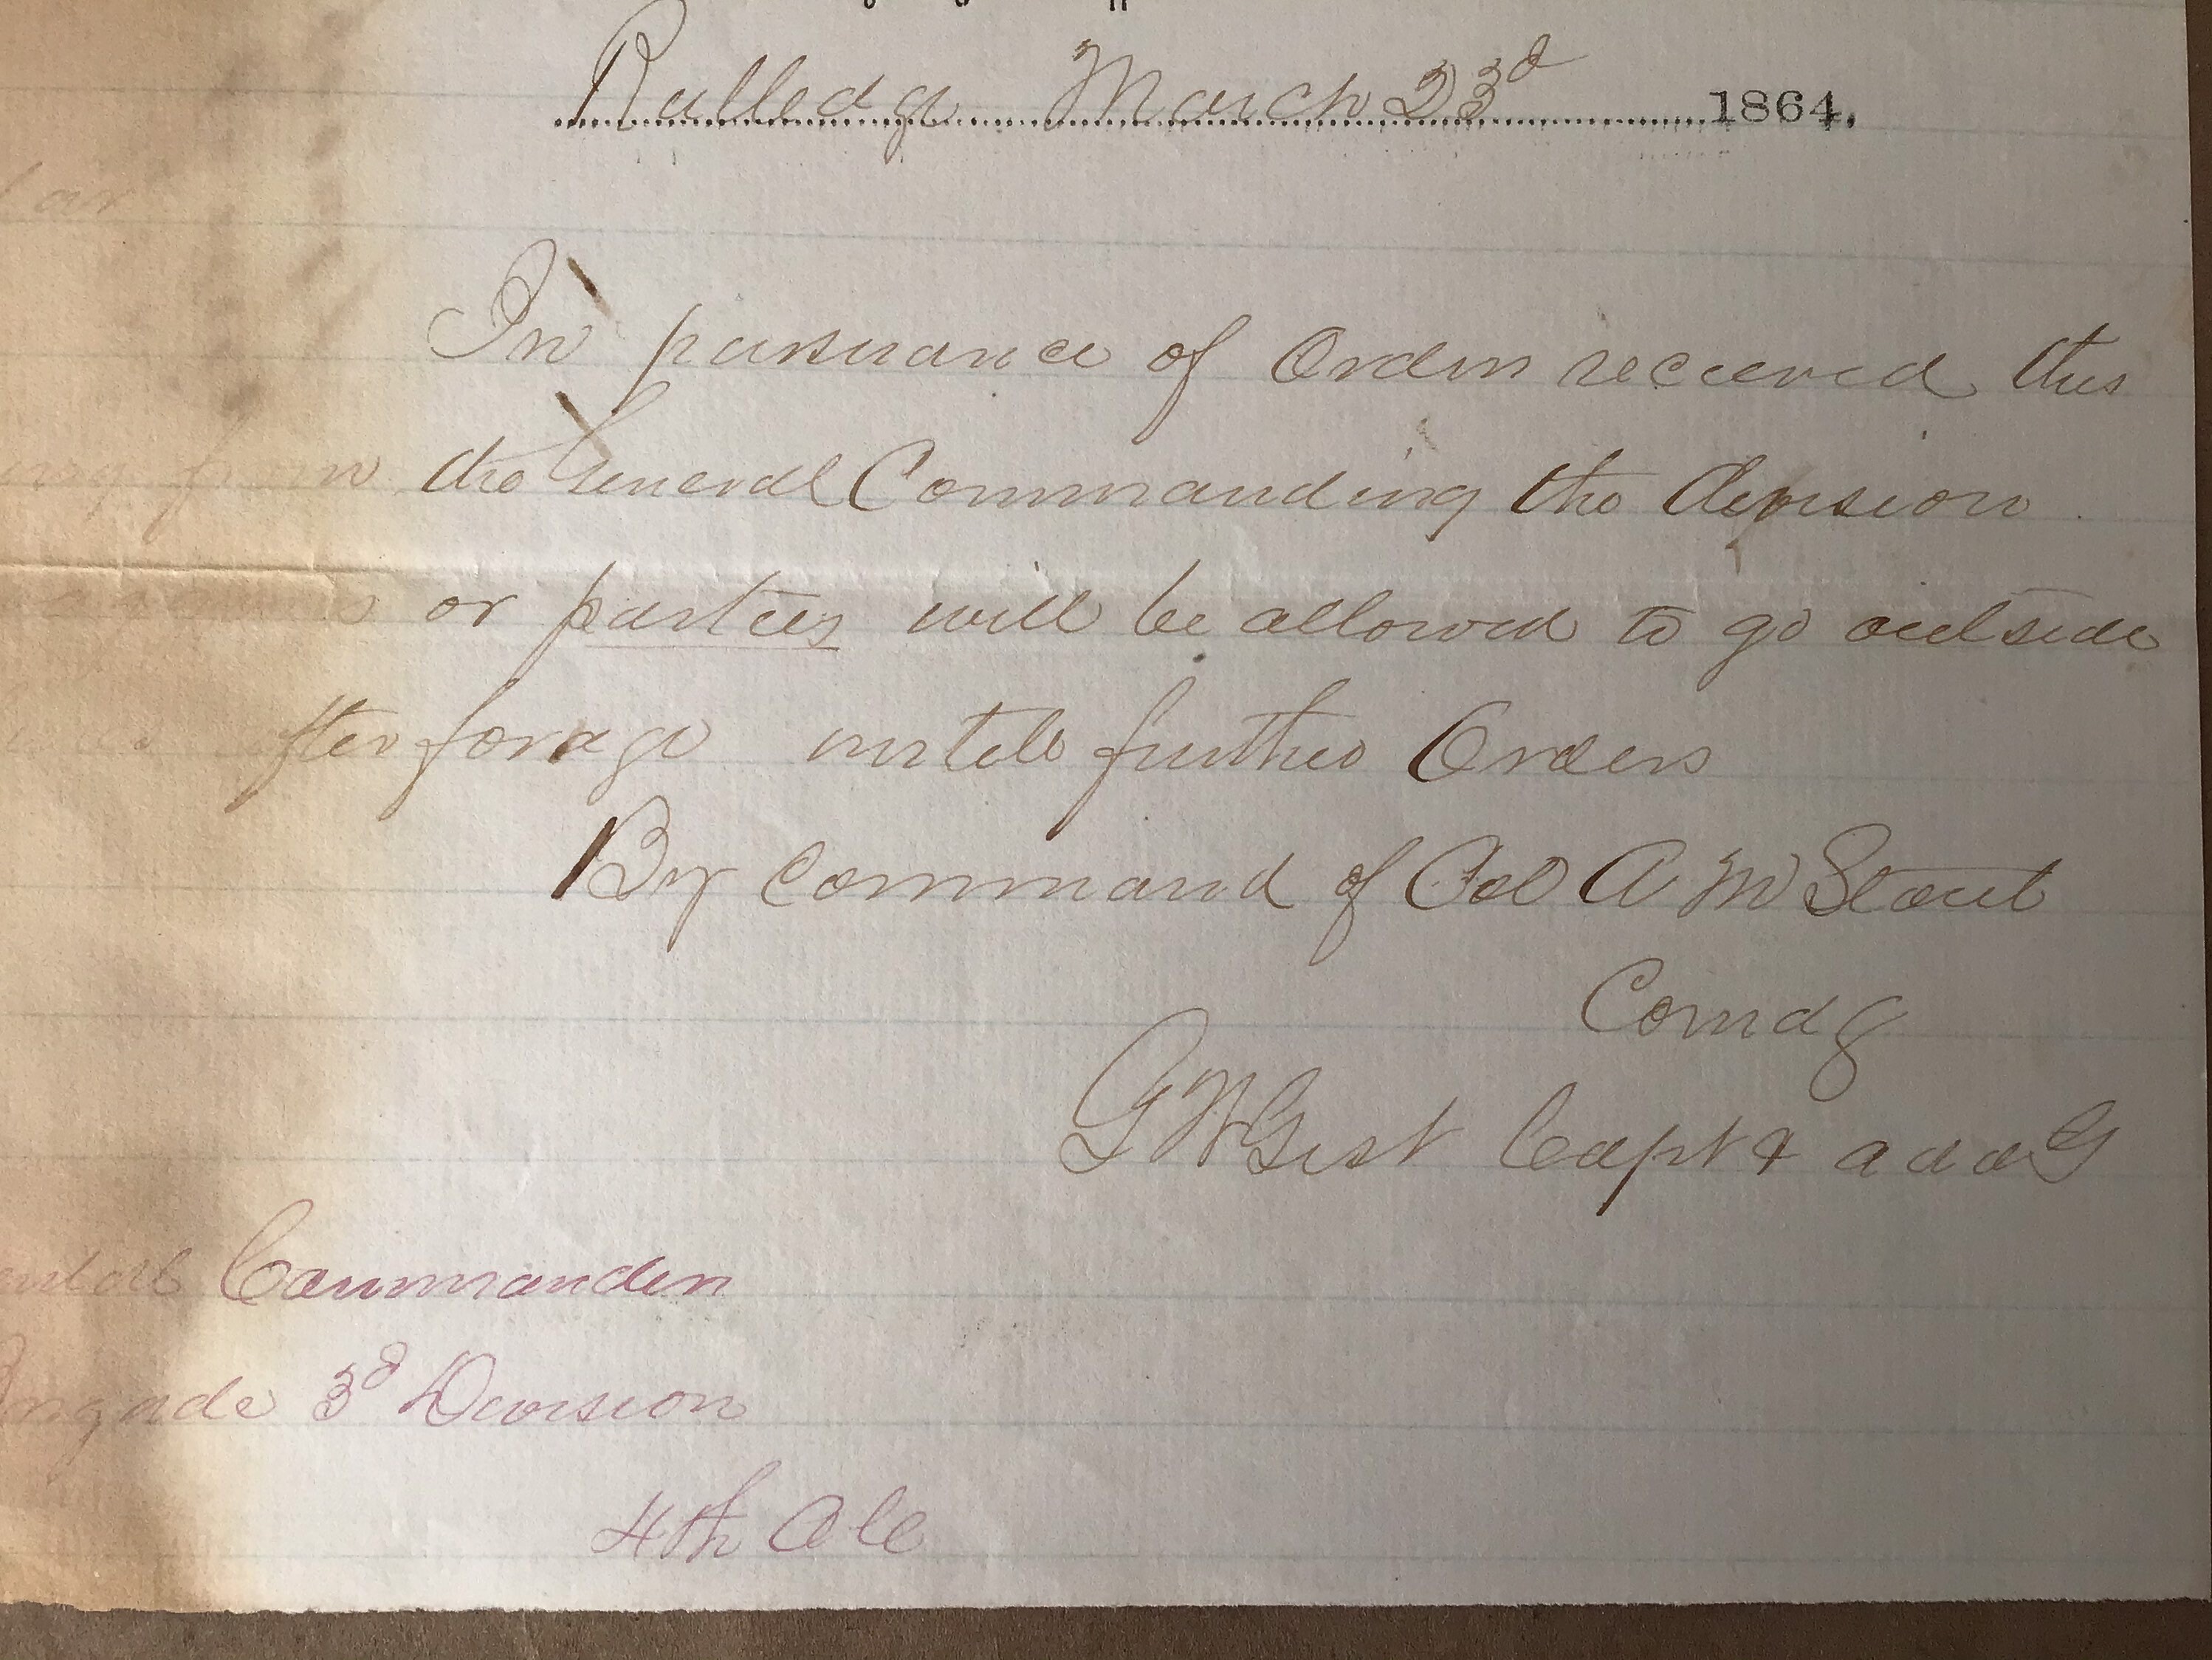 Rutledge March 23d 1864.
In pursuance of Orders recieved this
from the General Commanding the division
or parties will be allowed to go outside
after forage untill further Orders
By command of Col A M Stout
Comdg
G W Gist Capt & a a a G
Commanders
Brigade 3d Division
4th A C